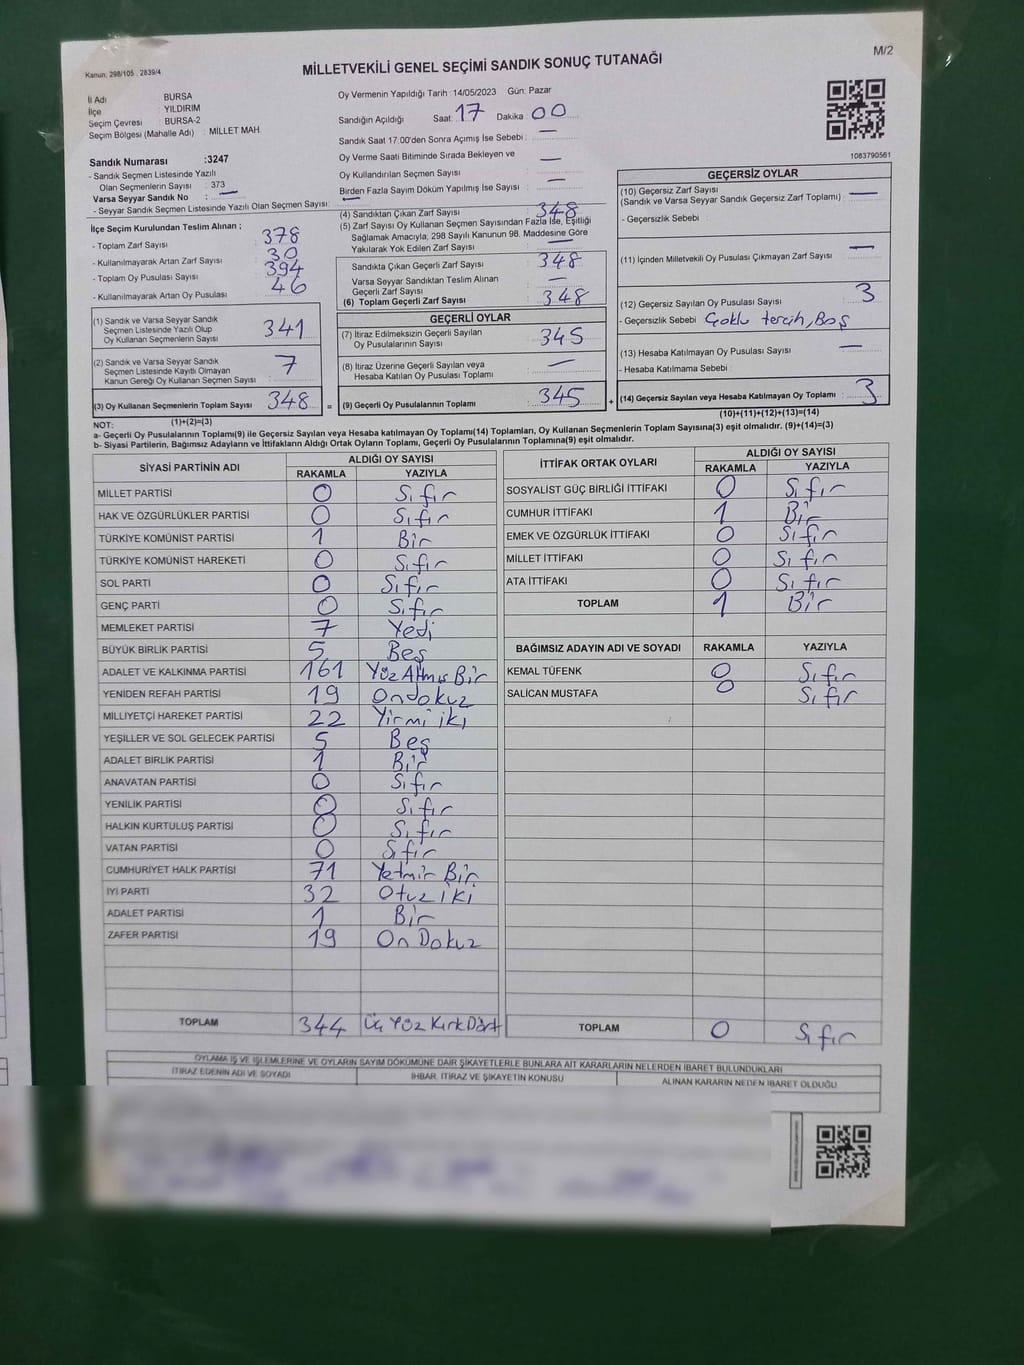 Kanun, 298/105 , 2839/4
MİLLETVEKİLİ GENEL SEÇİMİ SANDIK SONUÇ TUTANAĞI
M/2
İl Adı : BURSA
İlçe : YILDIRIM
Seçim Çevresi : BURSA-2
Seçim Bölgesi (Mahalle Adı) : MİLLET MAH.
Sandık Numarası :3247
- Sandık Seçmen Listesinde Yazılı
Olan Seçmenlerin Sayısı : 373
Varsa Seyyar Sandık No : —
- Seyyar Sandık Seçmen Listesinde Yazılı Olan Seçmen Sayısı: —
Oy Vermenin Yapıldığı Tarih : 14/05/2023 Gün: Pazar
Sandığın Açıldığı Saat: 17 Dakika 00
Sandık Saat 17:00'den Sonra Açımış İse Sebebi : —
Oy Verme Saati Bitiminde Sırada Bekleyen ve
Oy Kullandırılan Seçmen Sayısı : —
Birden Fazla Sayım Döküm Yapılmış İse Sayısı : —
1083790561
İlçe Seçim Kurulundan Teslim Alınan ;
- Toplam Zarf Sayısı : 378
- Kullanılmayarak Artan Zarf Sayısı : 30
- Toplam Oy Pusulası Sayısı : 394
- Kullanılmayarak Artan Oy Pusulası : 46
(1) Sandık ve Varsa Seyyar Sandık
Seçmen Listesinde Yazılı Olup
Oy Kullanan Seçmenlerin Sayısı : 341
(2) Sandık ve Varsa Seyyar Sandık
Seçmen Listesinde Kayıtlı Olmayan
Kanun Gereği Oy Kullanan Seçmen Sayısı : 7
(3) Oy Kullanan Seçmenlerin Toplam Sayısı : 348
(1)+(2)=(3)
(4) Sandıktan Çıkan Zarf Sayısı : 348
(5) Zarf Sayısı Oy Kullanan Seçmen Sayısından Fazla İse, Eşitliği
Sağlamak Amacıyla, 298 Sayılı Kanunun 98. Maddesine Göre
Yakılarak Yok Edilen Zarf Sayısı : —
Sandıkta Çıkan Geçerli Zarf Sayısı : 348
Varsa Seyyar Sandıktan Teslim Alınan
Geçerli Zarf Sayısı : —
(6) Toplam Geçerli Zarf Sayısı : 348
GEÇERLİ OYLAR
(7) İtiraz Edilmeksizin Geçerli Sayılan
Oy Pusulalarının Sayısı : 345
(8) İtiraz Üzerine Geçerli Sayılan veya
Hesaba Katılan Oy Pusulası Toplamı : —
= (9) Geçerli Oy Pusulalarının Toplamı : 345 +
GEÇERSİZ OYLAR
(10) Geçersiz Zarf Sayısı
(Sandık ve Varsa Seyyar Sandık Geçersiz Zarf Toplamı) : —
- Geçersizlik Sebebi :
(11) İçinden Milletvekili Oy Pusulası Çıkmayan Zarf Sayısı : —
(12) Geçersiz Sayılan Oy Pusulası Sayısı : 3
- Geçersizlik Sebebi : Çoklu tercih, Boş
(13) Hesaba Katılmayan Oy Pusulası Sayısı : —
- Hesaba Katılmama Sebebi :
(14) Geçersiz Sayılan veya Hesaba Katılmayan Oy Toplamı : 3
(10)+(11)+(12)+(13)=(14)
NOT:
a- Geçerli Oy Pusulalarının Toplamı(9) ile Geçersiz Sayılan veya Hesaba Katılmayan Oy Toplamı(14) Toplamları, Oy Kullanan Seçmenlerin Toplam Sayısına(3) eşit olmalıdır. (9)+(14)=(3)
b- Siyasi Partilerin, Bağımsız Adayların ve İttifakların Aldığı Ortak Oyların Toplamı, Geçerli Oy Pusulalarının Toplamına(9) eşit olmalıdır.
SİYASİ PARTİNİN ADI ALDIĞI OY SAYISI
RAKAMLA YAZIYLA
MİLLET PARTİSİ 0 Sıfır
HAK VE ÖZGÜRLÜKLER PARTİSİ 0 Sıfır
TÜRKİYE KOMÜNİST PARTİSİ 1 Bir
TÜRKİYE KOMÜNİST HAREKETİ 0 Sıfır
SOL PARTİ 0 Sıfır
GENÇ PARTİ 0 Sıfır
MEMLEKET PARTİSİ 7 Yedi
BÜYÜK BİRLİK PARTİSİ 5 Beş
ADALET VE KALKINMA PARTİSİ 161 Yüz Atmış Bir
YENİDEN REFAH PARTİSİ 19 Ondokuz
MİLLİYETÇİ HAREKET PARTİSİ 22 Yirmi iki
YEŞİLLER VE SOL GELECEK PARTİSİ 5 Beş
ADALET BİRLİK PARTİSİ 1 Bir
ANAVATAN PARTİSİ 0 Sıfır
YENİLİK PARTİSİ 0 Sıfır
HALKIN KURTULUŞ PARTİSİ 0 Sıfır
VATAN PARTİSİ 0 Sıfır
CUMHURİYET HALK PARTİSİ 71 Yetmir Bir
İYİ PARTİ 32 Otuz iki
ADALET PARTİSİ 1 Bir
ZAFER PARTİSİ 19 On Dokuz
TOPLAM 344 Üç Yüz Kırk Dört
İTTİFAK ORTAK OYLARI ALDIĞI OY SAYISI
RAKAMLA YAZIYLA
SOSYALİST GÜÇ BİRLİĞİ İTTİFAKI 0 Sıfır
CUMHUR İTTİFAKI 1 Bir
EMEK VE ÖZGÜRLÜK İTTİFAKI 0 Sıfır
MİLLET İTTİFAKI 0 Sıfır
ATA İTTİFAKI 0 Sıfır
TOPLAM 1 Bir
BAĞIMSIZ ADAYIN ADI VE SOYADI RAKAMLA YAZIYLA
KEMAL TÜFENK 0 Sıfır
SALİCAN MUSTAFA 0 Sıfır
TOPLAM 0 Sıfır
OYLAMA İŞ VE İŞLEMLERİNE VE OYLARIN SAYIM DÖKÜMÜNE DAİR ŞİKAYETLERLE BUNLARA AİT KARARLARIN NELERDEN İBARET BULUNDUKLARI
İTİRAZ EDENİN ADI VE SOYADI İHBAR, İTİRAZ VE ŞİKAYETİN KONUSU ALINAN KARARIN NEDEN İBARET OLDUĞU